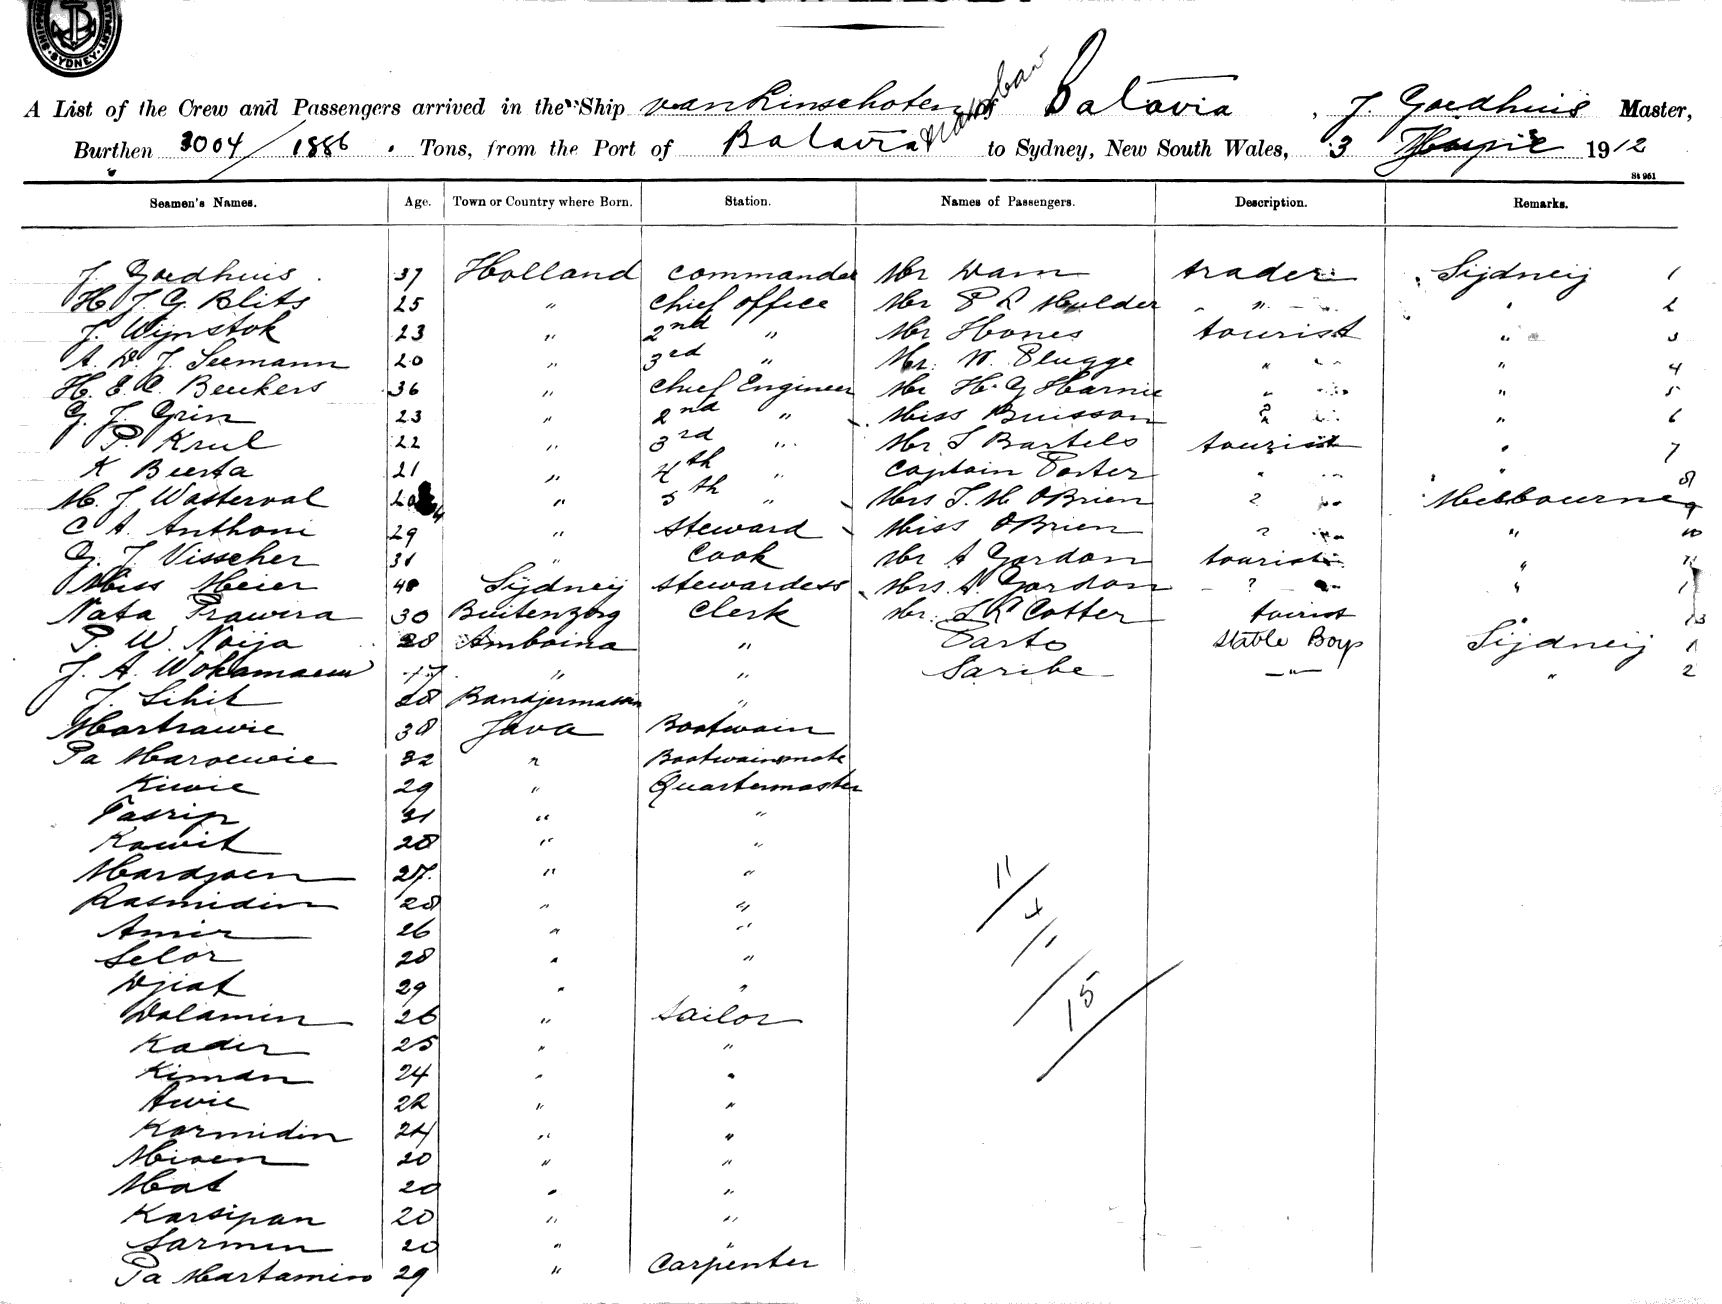 SYDNEY
A List of the Crew and Passengers arrived in the Ship van Linschoten of Batavia, J. Goedhuis Master,
Burthen 3004/1886. Tons, from the Port of Batavia to Sydney, New South Wales, 3 1912
St 961
Seamen's Names. Age. Town or Country where Born. Station. Names of Passengers. Description. Remarks.
J. Goedhuis. 37 Holland commander Mr Dam trader Sijdneij 1
H. J. G. Blits 25 " chief office Mr P L Mulder " " 2
J. Wijnstok 23 " 2nd " Mr Hones tourist " 3
A. D. J. Seemann 20 " 3rd " Mr. W. Plugge " " 4
H. E. C. Beukers 36 " chief Engineer Mr H. G Harnie " " 5
G. J. Grin 23 " 2nd " Miss Buisson ? " 6
P. Krul 22 " 3rd " Mr J Bartels tourist " 7
K Beerta 21 " 4th " Captain Porter " " 8
M. J. Wasterval " 5th " Mrs T. M OBrien ? Melbourne 9
C A. Anthoni 29 " Steward Miss OBrien ? " 10
G. J. Visscher 31 " Cook Mr A Gordon tourist " 11
Miss Meier 48 Sijdneij stewardess Mrs A. Gordon ? "
Nata Prawira 30 Buitenzorg Clerk Mr. L R Cotter tourist 13
P. W. Noija 28 Amboina " Tarto Stable Boys Sijdneij 1
J. A. Wokamaeu 17 " " Saribe " " 2
J. Sihit 28 Bandjermassin "
Martrawie 38 Java Bootwain
Pa Maroewie 32 " Bootwainsmate
Kiwie 29 " Quartermaster
Tasrip 31 " "
Kawit 28 " "
Mardjoen 27. " "
Rasmidin 28 " "
Amir 26 " "
Selor 28 " "
Djiat 29 " "
Dalamin 26 " Sailor
Kader 25 " "
Kiman 24 " "
Awie 22 " "
Karmidin 24 " "
Mioen 20 " "
Mat 20 " "
Karsipan 20 " "
Sarmin 20 " "
Pa Martamino 29 " Carpenter
11/
4/1
/15/